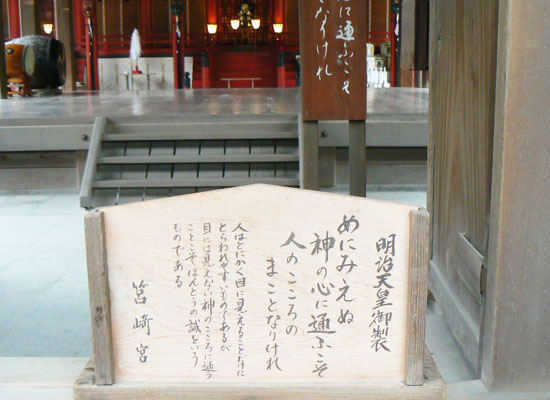 に通ふこそ
となりけれ
明治天皇御製
めにみえぬ
神の心に通ふこそ
人のこころの
まことなりけれ
人はとにかく目に見えることだけに
とらわれやすいものであるが
目には見えない神のこころに通う
ことこそほんとうの誠という
ものである
筥崎宮